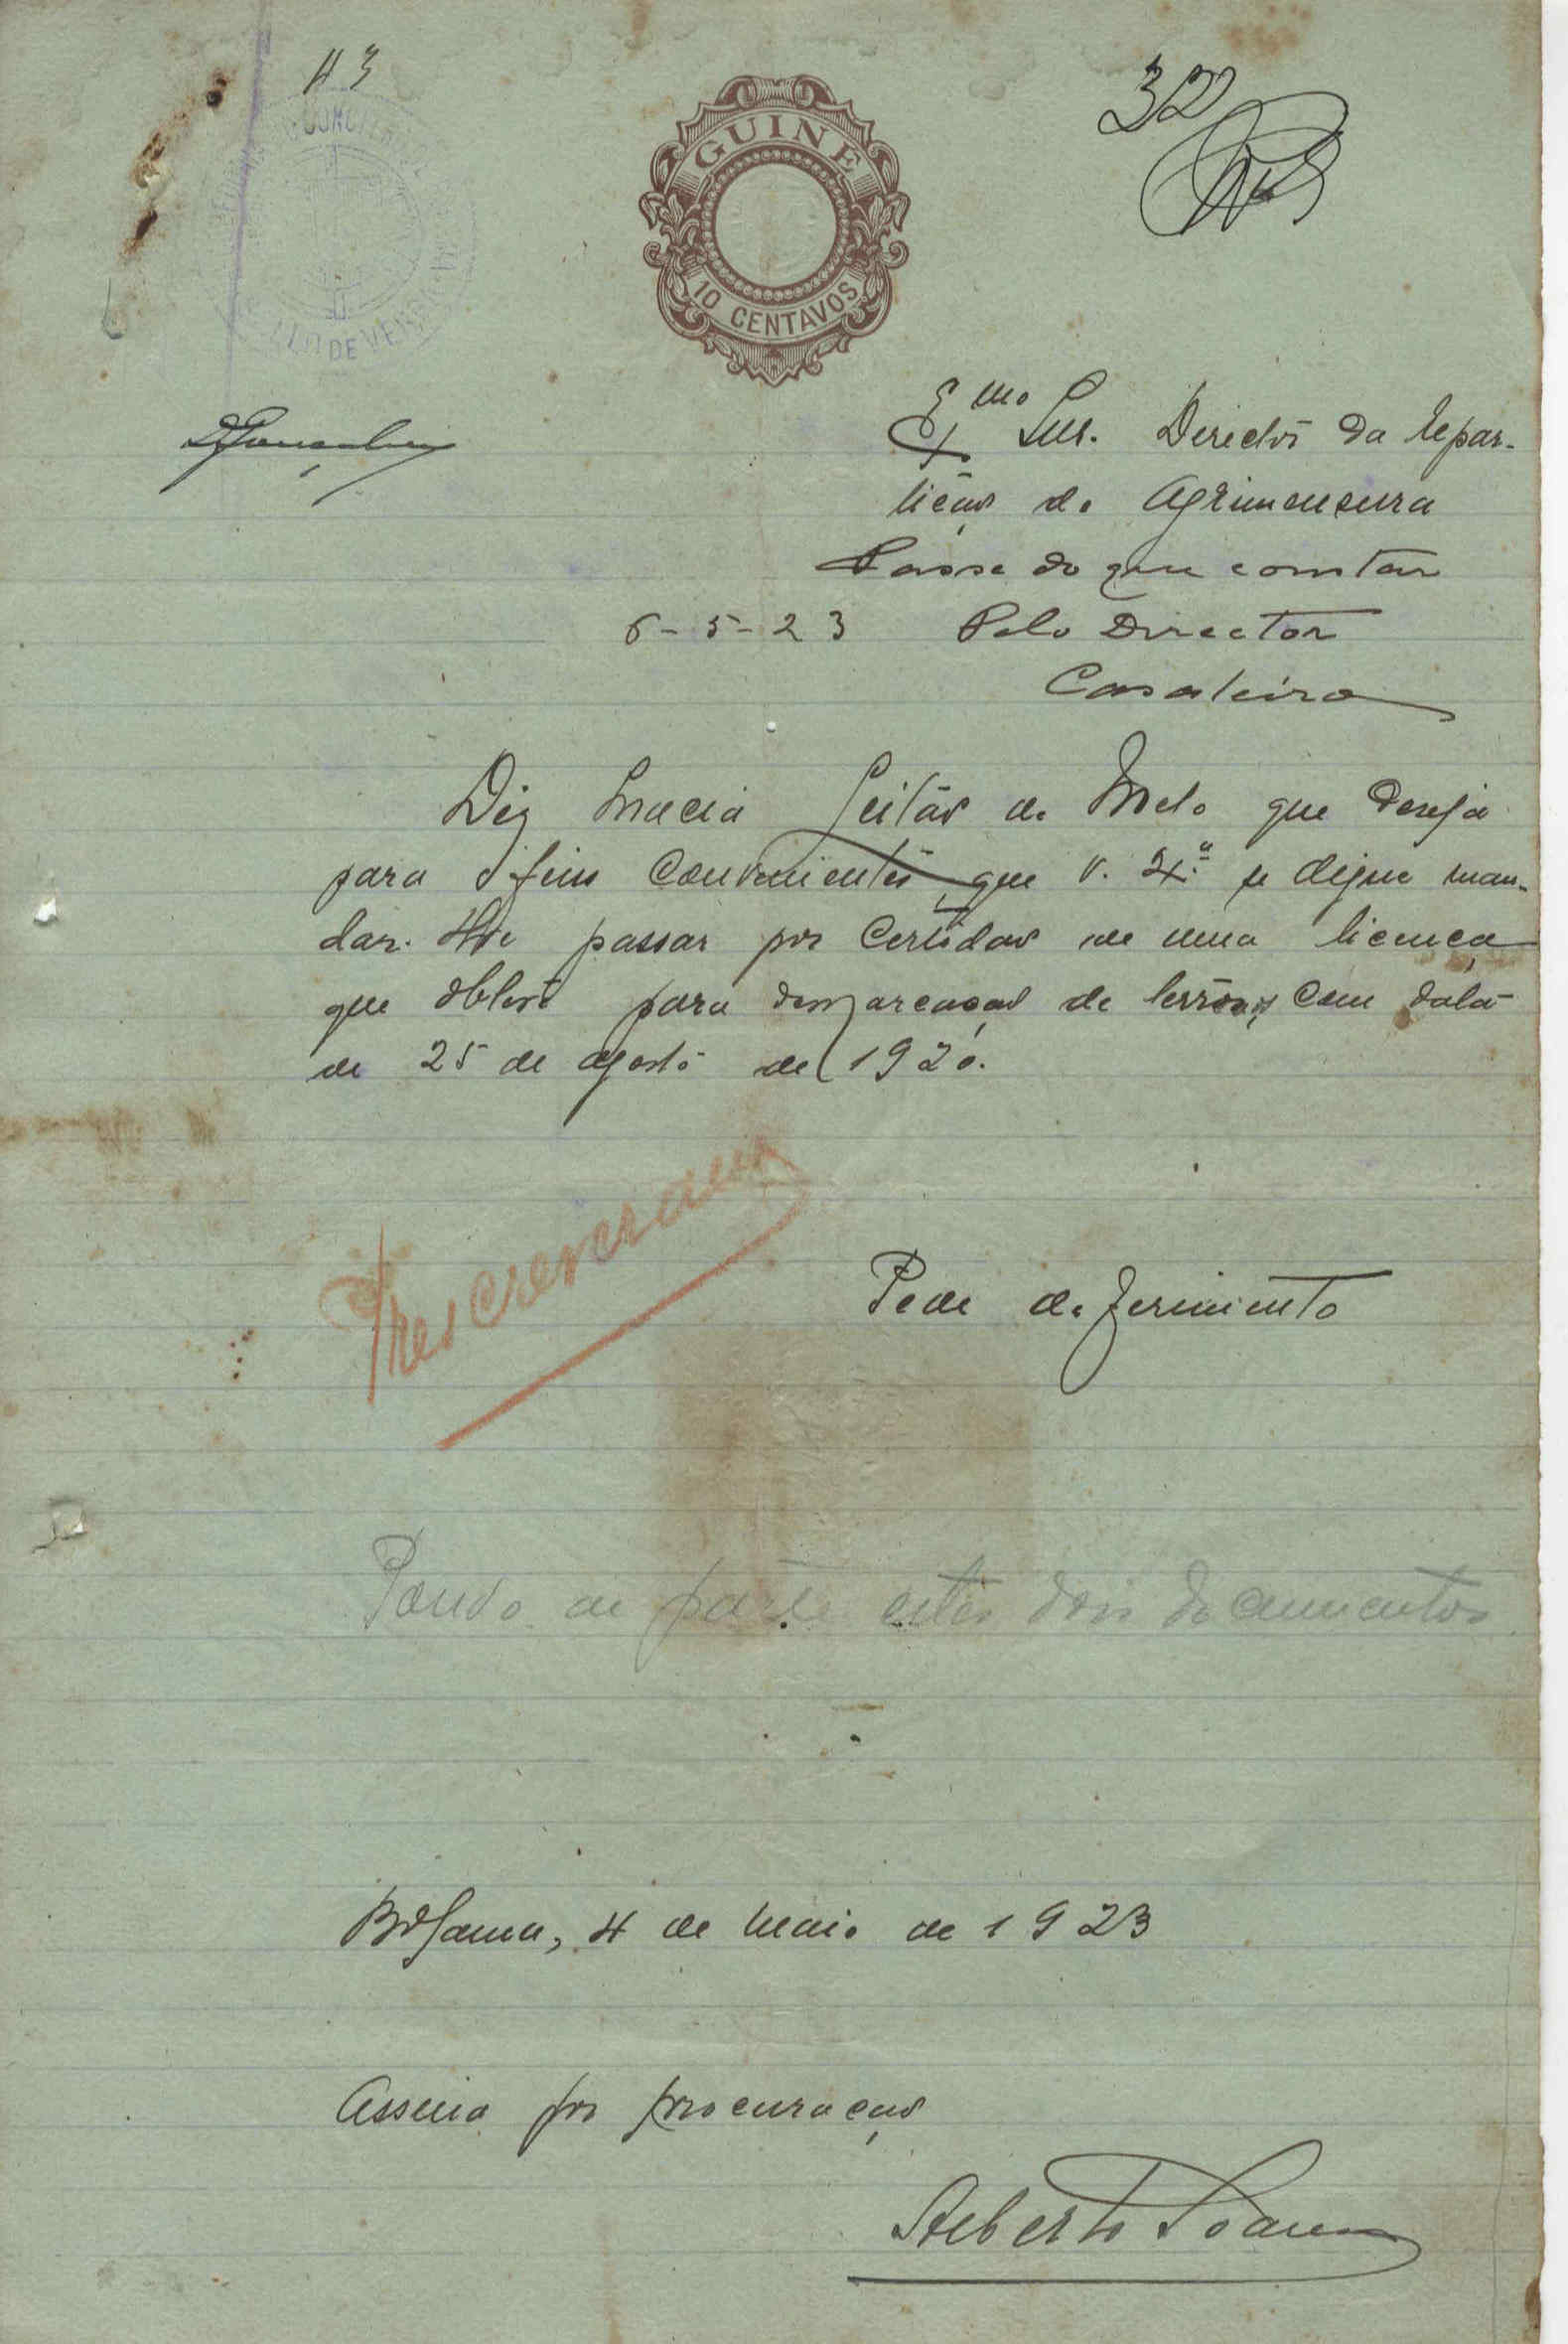 43
32
GUINÉ
10 CENTAVOS
DE
Exmo Snr. Director da Repar-
tição de Agrimensura
Passe do que constar
6-5-23 Pelo Director
Casaleiro
Diz Inacia Leitão de Melo que deseja
para fins convenientes, que V. Exª se digne man-
dar-lhe passar por certidão de uma licença
que obteve para demarcação de terrenos com data
de 25 de agosto de 1920.
Prescreveram
Pede deferimento
de parte estes dois documentos
Bolama, 4 de Maio de 1923
Assina por procuração
Alberto Soares